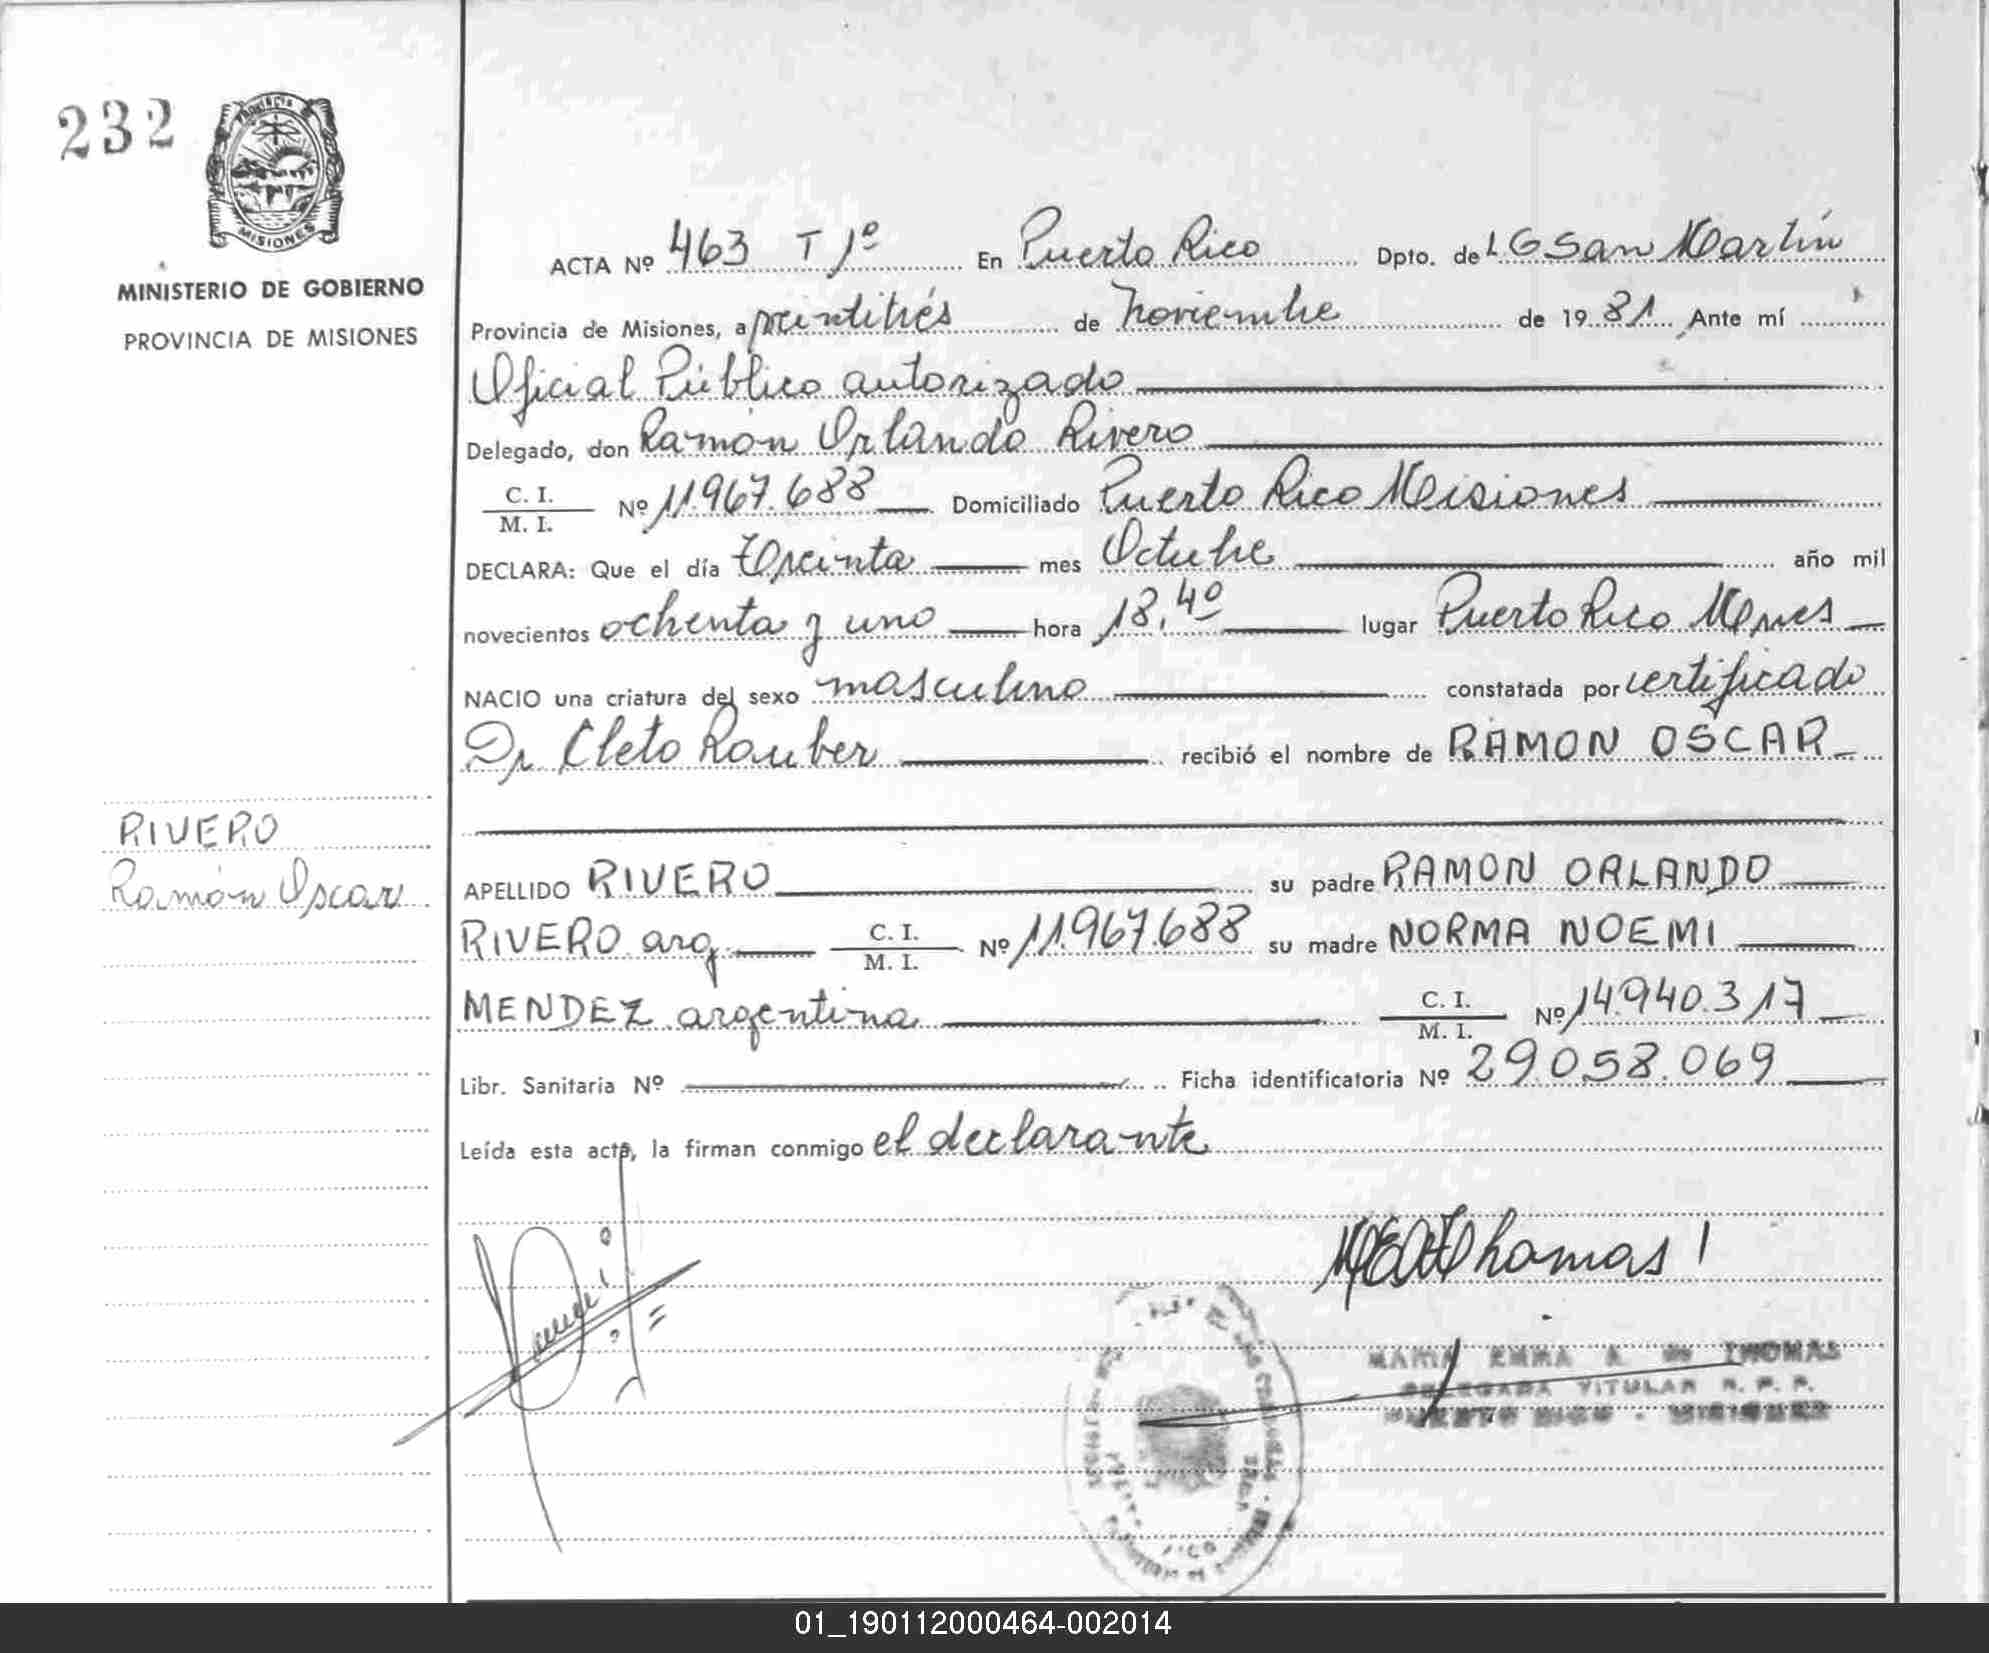 232
PROVINCIA
MISIONES
MINISTERIO DE GOBIERNO
PROVINCIA DE MISIONES
ACTA Nº 463 T 1º En Puerto Rico Dpto. de L G San Martín
Provincia de Misiones, a veintitrés de noviembre de 1981 Ante mí
Oficial Público autorizado
Delegado, don Ramón Orlando Rivero
C. I.
M. I. Nº 11.967.688 Domiciliado Puerto Rico Misiones
DECLARA: Que el día Treinta mes Octubre año mil
novecientos ochenta y uno hora 18,40 lugar Puerto Rico Mnes
NACIO una criatura del sexo masculino constatada por certificado
Dr Cleto Rauber recibió el nombre de RAMON OSCAR
RIVERO
Ramón Oscar
APELLIDO RIVERO su padre RAMON ORLANDO
RIVERO arg. C. I.
M. I. Nº 11.967.688 su madre NORMA NOEMI
MENDEZ argentina C. I.
M. I. Nº 14.940.317
Libr. Sanitaria Nº Ficha identificatoria Nº 29.058.069
Leída esta acta, la firman conmigo el declarante
Thomas
MARIA EMMA A. DE THOMAS
DELEGADA TITULAR R. P. P.
PUERTO RICO - MISIONES
01_190112000464-002014